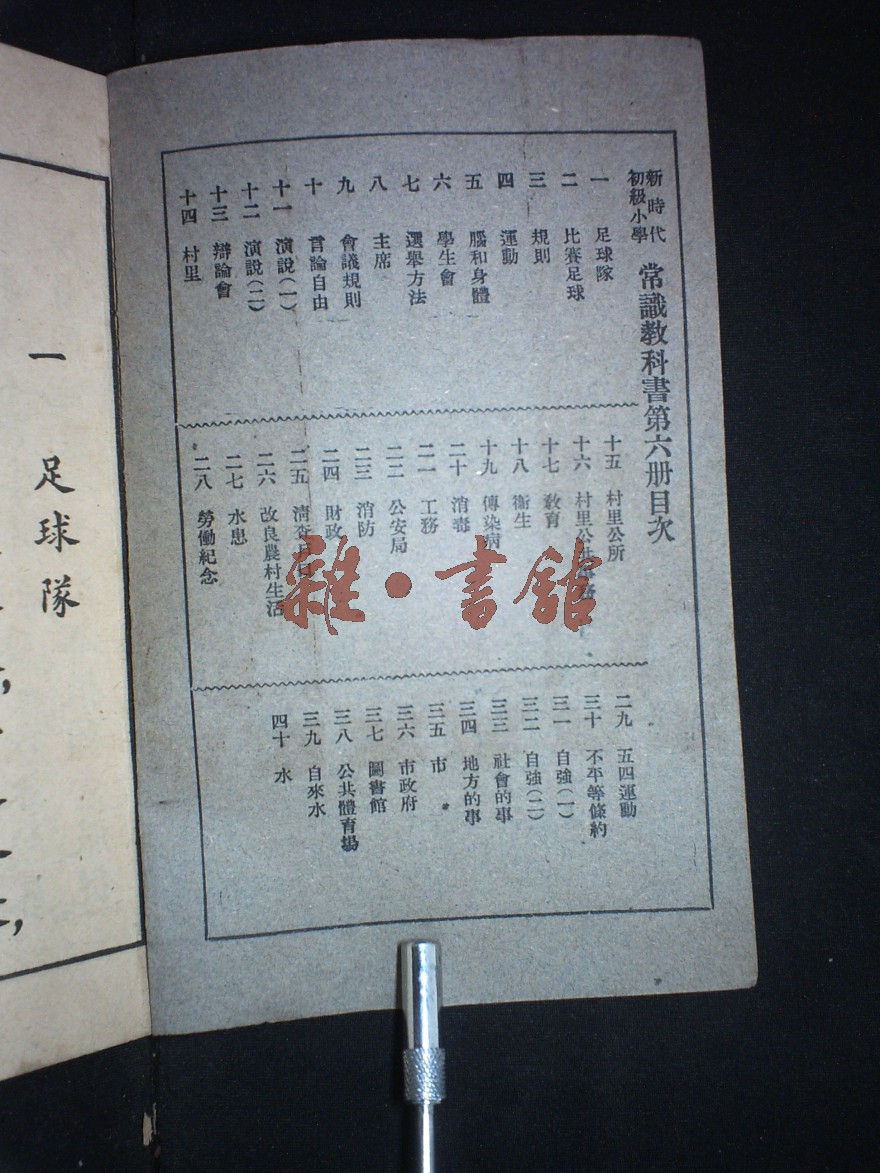 新時代
初級小學
常識教科書第六册目次
一 足球隊
二 比賽足球
三 規則
四 運動
五 腦和身體
六 學生會
七 選舉方法
八 主席
九 會議規則
十 言論自由
十一 演說(一)
十二 演說(二)
十三 辯論會
十四 村里
十五 村里公所
十六 村里公共事務
十七 敎育
十八 衞生
十九 傳染病
二十 消毒
二一 工務
二二 公安局
二三 消防
二四 財政
二五 清查戶口
二六 改良農村生活
二七 水患
二八 勞働紀念
二九 五四運動
三十 不平等條約
三一 自強(一)
三二 自強(二)
三三 社會的事
三四 地方的事
三五 市
三六 市政府
三七 圖書館
三八 公共體育場
三九 自來水
四十 水
一 足球隊
雜·書舘